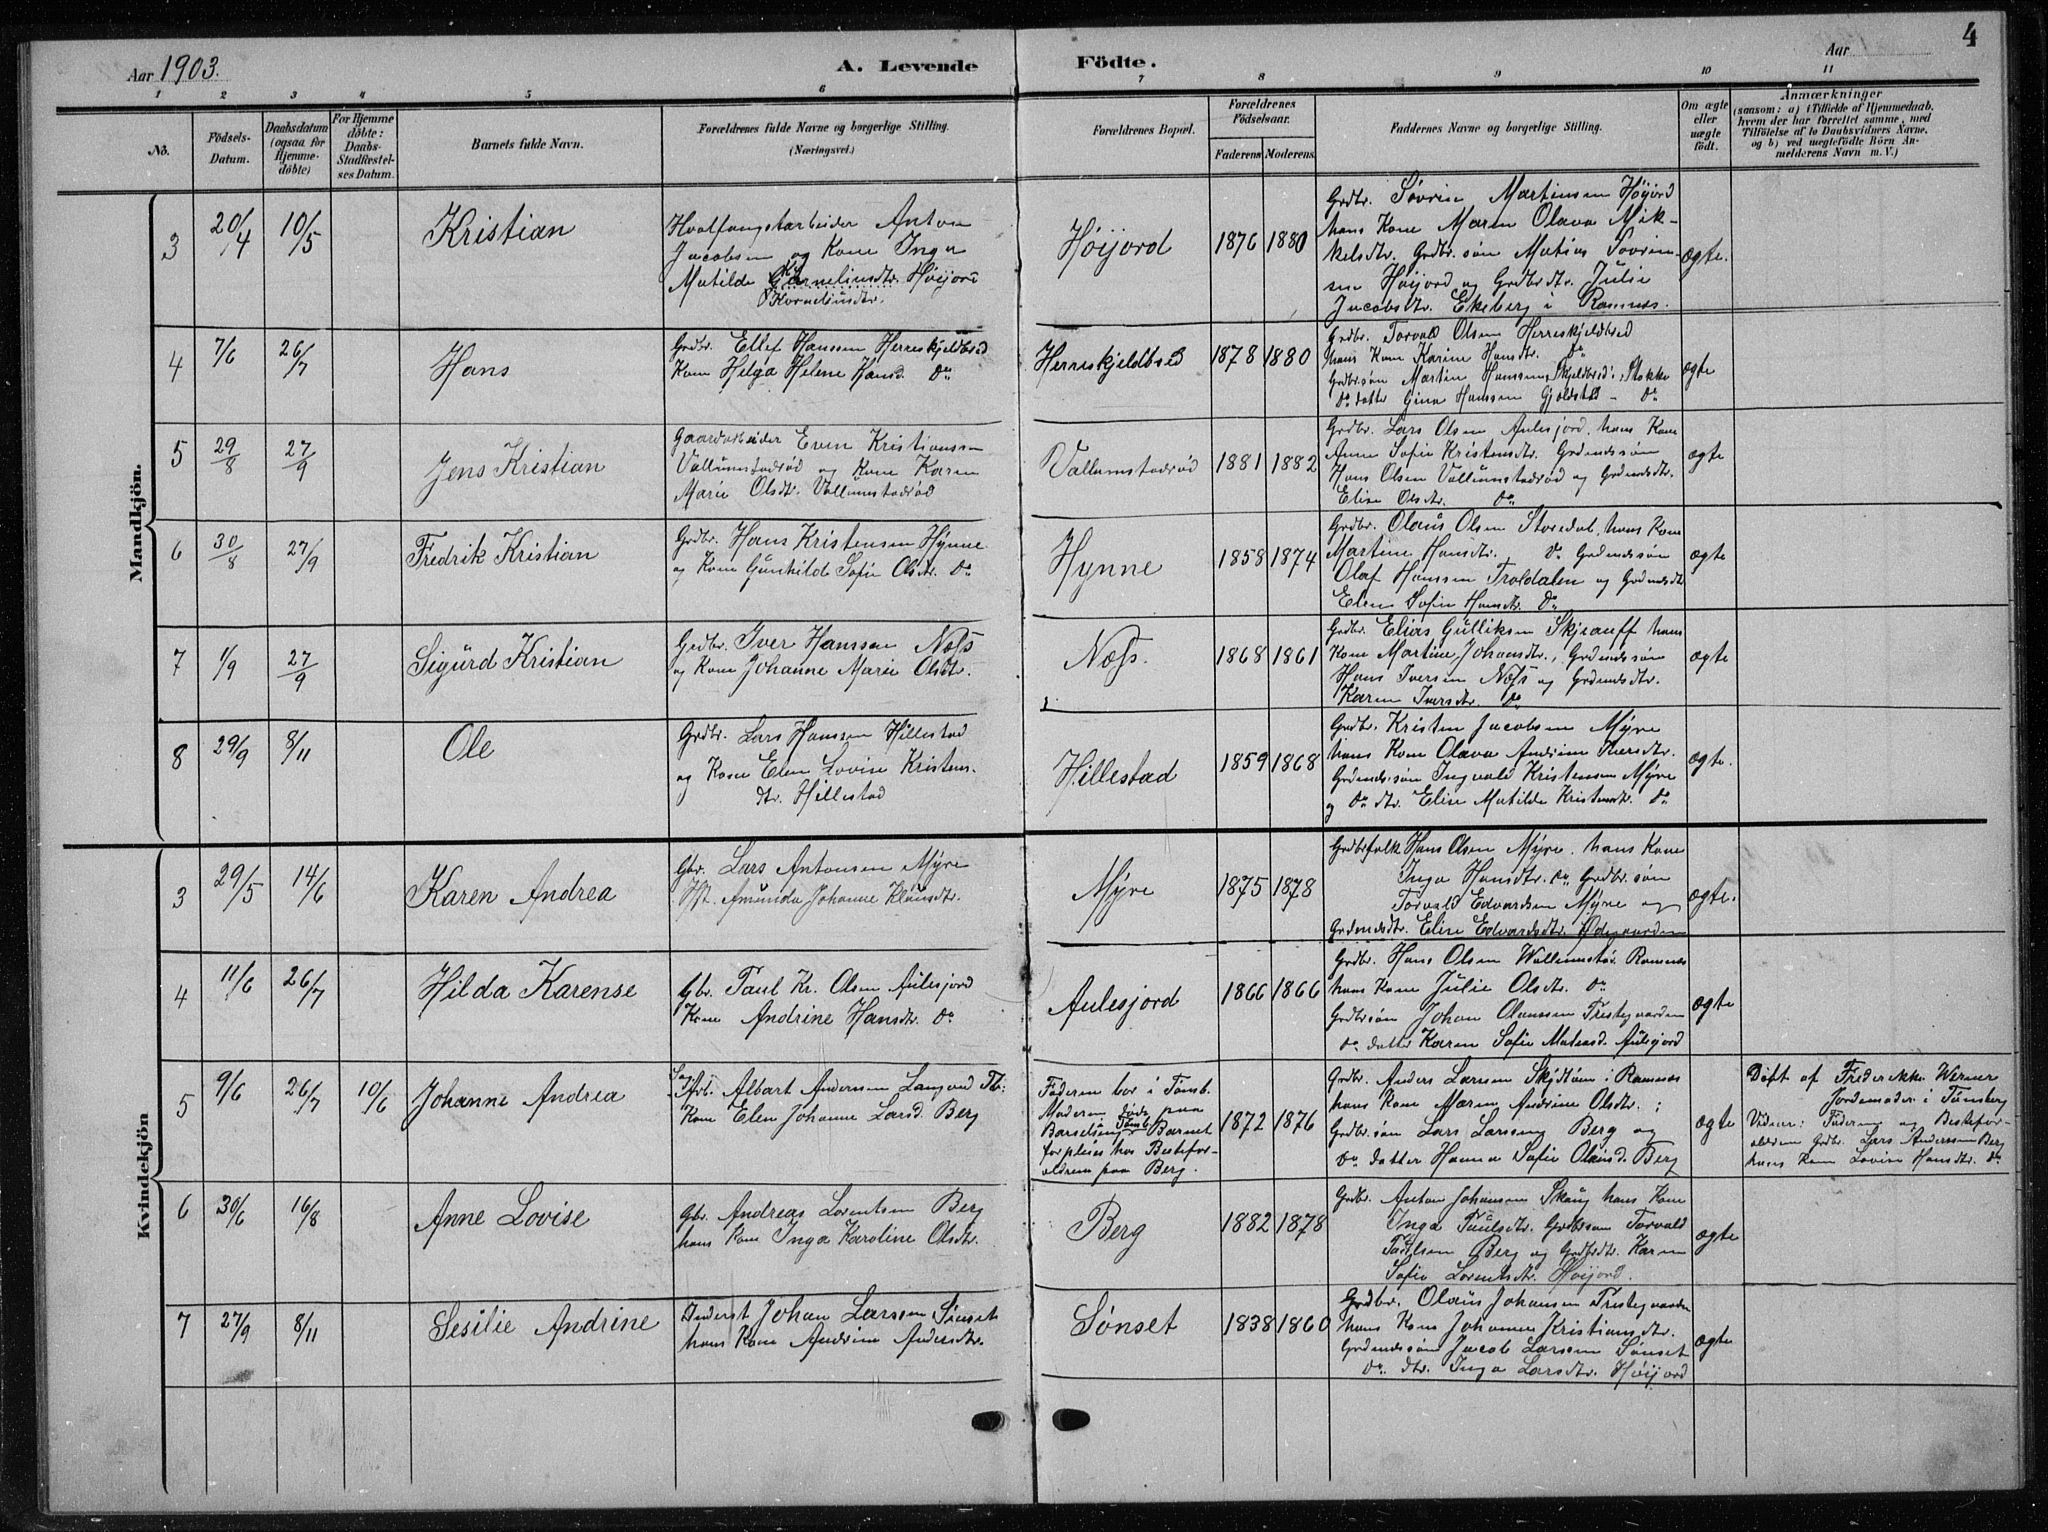 Aar 1903.
A. Levende Födte.
Aar
4
1 2 3 4 5 6 7 8 9 10 11
No.
Födsels-Datum.
Daabsdatum (ogsaa for Hjemme-döbte)
For Hjemme döbte: Daabs-Stadfæstel-ses Datum.
Barnets fulde Navn.
Forældrenes fulde Navne og borgerlige Stilling.
(Næringsvei.)
Forældrenes Bopæl.
Forældrenes Födselsaar.
Faderens Moderens
Faddernes Navne og borgerlige Stilling.
Om ægte eller uægte födt.
Anmærkninger
(saasom: a) i Tilfælde af Hjemmedaab,
hvem der har forrettet samme, med
Tilföielse af to Daabsvidners Navne,
og b) ved uægtefödte Börn An-
melderens Navn m. V.)
Mandkjön.
3 20/4 10/5 Kristian
Hvalfangstarbeider Anton
Jacobsen og Kone Inga
Matilde Høijord
Korneliusdtr.
Høijord 1876 1880
Grdbr. Søvrin Martinsen Høijord
hans Kone Maren Olava Mik-
kelsdtr. Grdbr.søn Matias Sovrin-
sen Høijord og Grdbrdtr. Julie
Jacobsdtr. Ekeberg i Ramnæs.
ægte.
4 7/6 26/7 Hans
Grdbr. Ellef Hanssen Herreskjeldbred
Kone Helga Helene Hansd. do
Herreskjeldbred 1878 1880
Grdbr. Torvald Olsen Herreskjeldbred
hans Kone Karine Hansdtr. do
Grdbrsøn Martin Hanssen, Skjeldbred i Stokke
do datter Gina Hanssen Gjeldsted - do
ægte
5 29/8 27/9 Jens Kristian
Gaardarbeider Even Kristianssen
Vallumstadrød og Kone Karen
Marie Olsdtr. Vallumstadrød
Vallumstadrød 1881 1882
Grdbr. Lars Olsen Aulesjord, hans Kone
Anne Sofie Kristensdtr. Grdmdssøn
Hans Olsen Vallumstadrød og Grdmdsdtr.
Elise Olsdtr. do
ægte
6 30/8 27/9 Fredrik Kristian
Grdbr. Hans Kristensen Hynne
og Kone Gunhilde Sofie Olsdtr. do
Hynne 1858 1874
Grdbr. Olaüs Olsen Storedal, hans Kone
Martine Hansdtr. do Grdmdssøn
Olaf Hanssen Troldalen og Grdmdsdtr
Elen Sofie Hansdtr. do
ægte
7 1/9 27/9 Sigurd Kristian
Grdbr. Iver Hanssen Næss
og Kone Johanne Marie Olsdtr.
Næss. 1868 1861
Grdbr. Elias Gulliksen Skjeauff hans
Kone Martine Johansdtr., Grdmdssøn
Hans Iversen Næss og Grdmdsdtr.
Karen Iversdtr. do
ægte
8 29/9 8/11 Ole
Grdbr. Lars Hanssen Hillestad
og Kone Elen Lovise Kristens-
dtr. Hillestad
Hillestad 1859 1868
Grdbr. Kristen Jacobsen Myre
hans Kone Olava Andrine Iversdtr.
Grdmdssøn Ingvald Kristensen Myre
og do dtr. Elise Matilde Kristensdtr. do
ægte.
Kvindekjön
3 29/5 14/6 Karen Andrea
Gbr. Lars Antonsen Myre
Hst. Amunda Johanne Klausdtr.
Myre 1875 1878
Grdbrfolk Hans Olsen Myre. hans Kone
Inga Hansdtr. do Grdbr.søn
Torvald Edvardsen Myre og
Grdmdsdtr. Elise Edvardsdtr. Ødegaarden
ægte.
4 11/6 26/7 Hilda Karense
Gbr. Paul Kr. Olsen Aulesjord
Kone Andrine Hansdtr. do
Aulesjord 1866 1866
Grdbr. Hans Olsen Wallumstø. Ramnæs
hans Kone Julie Olsdtr. do
Grdbrsøn Johan Olaussen Prestegaarden
do datter Karen Sofie Matisd. Aulesjord
ægte
5 9/6 26/7 10/6 Johanne Andrea
Albart Andersen Tb:
Kone Elen Johanne Larsd. Berg
Faderen bor i Tønsb.
Moderen føde paa
Barselseng Tønsb Barnet
forpleies hos Bestefor-
ældrene paa Berg.
1872 1876
Grdbr. Anders Larsen i Ramnæs
hans Kone Maren Andrine Olsdtr. ;
Grdbrsøn Lars Larseng Berg og
do datter Hanna Sofie Olausd. Berg
ægte
Døbt af Frederikke Werner
Jordemoder i Tønsberg
Vidner: Faderen og Bestefor-
ældrene Grdbr. Lars Anderssen Berg
hans Kone Lovise Hansdtr. do
6 30/6 16/8 Anne Lovise
Gbr. Andreas Lorentsen Berg
hans Kone Inga Karoline Olsdtr.
Berg 1882 1878
Grdbr. Anton Johansen Skaug hans Kone
Inga Paulsdtr. Grdbrsøn Torvald
Paulsen Berg og Grdbrdtr. Karen
Sofie Lorentsdtr. Høijord.
ægte
7 27/9 8/11 Sesilie Andrine
Inderst Johan Larssen Sønset
hans Kone Andrine Andersdtr.
Sønset 1838 1860
Grdbr. Olaüs Johansen Prestegaarden
hans Kone Johanne Kristiansdtr.
Grdmdssøn Jacob Larssen Sønset
do. dtr. Inga Larsdtr. Høijord
ægte